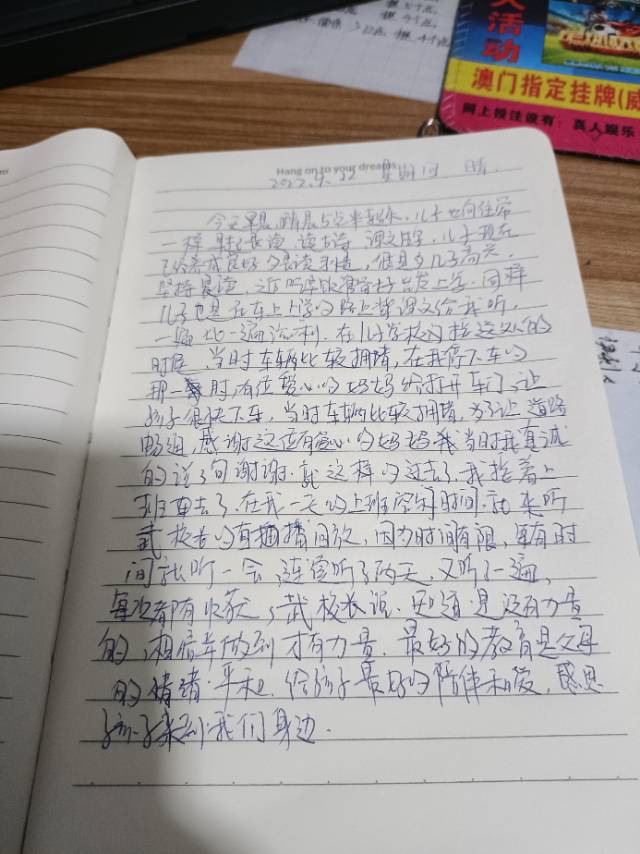 人活动
澳门指定挂牌(威
网上投注设有：真人娱乐
Hang on to your dreams
2022.9.22 星期四 晴
今天早晨,晴晨5点半起床,儿子也向往常
一样 晨读 读古诗 课文
儿子现在
已经养成良好的晨读习惯,但是为儿子高兴,
坚持晨读,
上学,同样
儿子也是在车上上学的路上背课文给我听,
一遍比一遍流利,在儿子学校门接送的
时候,当时车辆比较拥堵,在我停下车的
那一时,有位爱心的妈妈给打开车门,让
孩子很快下车,当时车辆比较拥堵,为了让道路
畅通,感谢这位有爱心的妈妈我当时我真诚
的说了句谢谢.就这样的过去了,我接着上
班而去了.在我一天的上班空闲时间.就来听
武校长的直播回放,因为时间有限,每有时
间就听一会,连着听了两天,又听了一遍,
每次都有收获,武校长说.知道是没有力量
的,相信并做到才有力量,最好的教育是父母
的情绪平和,给孩子最好的陪伴和爱,感恩
孩子来到我们身边.